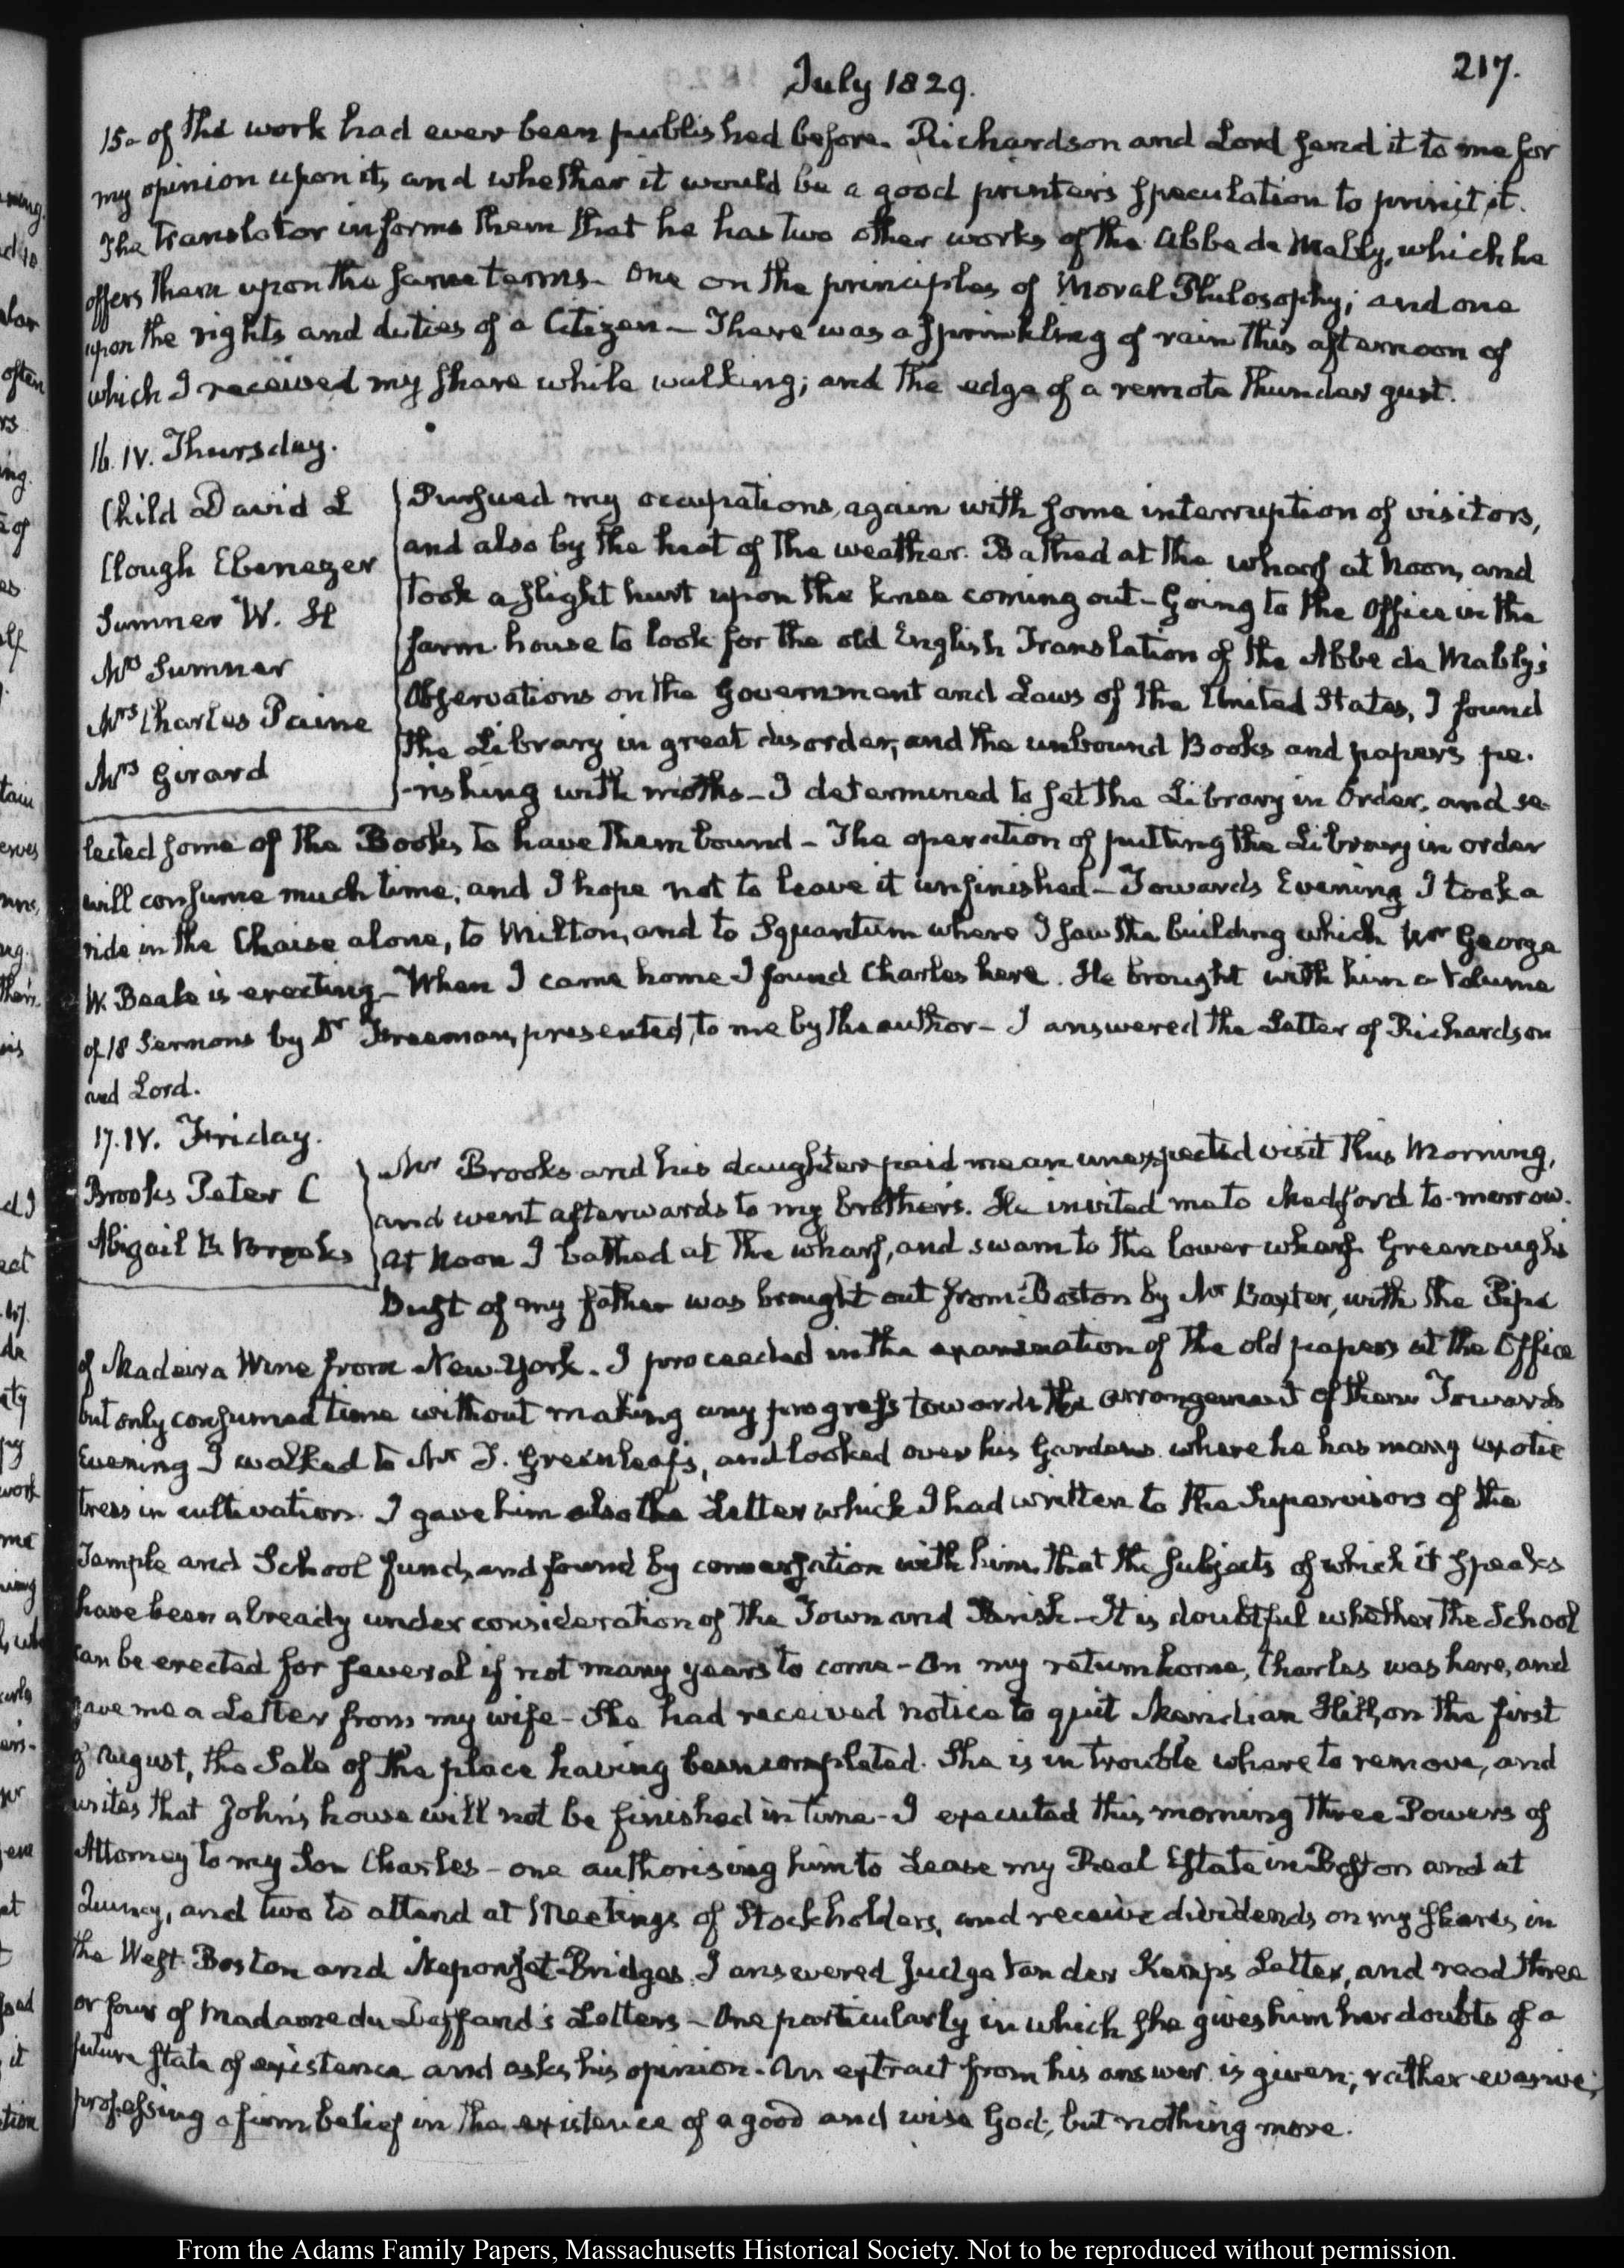 July 1829.
217.
15- of the work had ever been published before. Richardson and Lord send it to me for
my opinion upon it, and whether it would be a good printer's speculation to print it.
The translator informs them that he has two other works of the Abbe de Mably, which he
offers them upon the same terms- One on the principles of Moral Philosophy; and one
upon the rights and duties of a Citizen- There was a sprinkling of rain this afternoon of
which I received my share while walking; and the edge of a remote thunder gust.
16. IV. Thursday.
Child David L
Clough Ebenezer
Sumner W. H
Mrs Sumner
Mrs Charles Paine
Mrs Girard
Pursued my occupations, again with some interruption of visitors,
and also by the heat of the weather. Bathed at the wharf at Noon, and
took a slight hurt upon the knee coming out- Going to the Office in the
farm-house to look for the old English Translation of the Abbe de Mably's
Observations on the Government and Laws of the United States, I found
the Library in great disorder, and the unbound Books and papers pe-
-rishing with moths- I determined to set the Library in Order, and se-
lected some of the Books to have them bound- The operation of putting the Library in order
will consume much time, and I hope not to leave it unfinished- Towards Evening I took a
ride in the Chaise alone, to Milton, and to Squantum where I saw the building which Mr George
W. Beale is erecting- When I came home I found Charles here. He brought with him a Volume
of 18 Sermons by Dr Freeman, presented, to me by the author- I answered the Letter of Richardson
and Lord.
17. IV. Friday.
Brooks Peter C
Abigail B. Brooks
Mr Brooks and his daughter paid me an unexpected visit this Morning,
and went afterwards to my brother's. He invited me to Medford to-morrow.
At Noon I bathed at the wharf, and swam to the lower wharf. Greenough's
Bust of my father was brought out from Boston by Mr Baxter, with the Pipe
of Madeira Wine from New York. I proceeded in the examination of the old papers at the Office
but only consumed time without making any progress towards the arrangement of them Towards
Evening I walked to Mr T. Greenleaf's, and looked over his Gardens where he has many exotic
trees in cultivation. I gave him also the Letter which I had written to the Supervisors of the
Temple and School fund, and found by conversation with him, that the subjects of which it speaks
have been already under consideration of the Town and Parish- It is doubtful whether the School
can be erected for several if not many years to come- On my return home, Charles was here, and
gave me a Letter from my wife- She had received notice to quit Meridian Hill, on the first
of August, the Sale of the place having been completed. She is in trouble where to remove, and
writes that John's house will not be finished in time- I executed this morning three Powers of
Attorney to my Son Charles- one authorising him to Lease my Real Estate in Boston and at
Quincy, and two to attend at Meetings of Stockholders, and receive dividends on my shares in
the West Boston and Neponset Bridges. I answered Judge Van der Kemp's Letter, and read three
or four of Madame du Deffand's Letters- One particularly in which she gives him her doubts of a
future state of existence and asks his opinion. An extract from his answer is given; rather evasive;
professing a firm belief in the existence of a good and wise God; but nothing more.
From the Adams Family Papers, Massachusetts Historical Society. Not to be reproduced without permission.